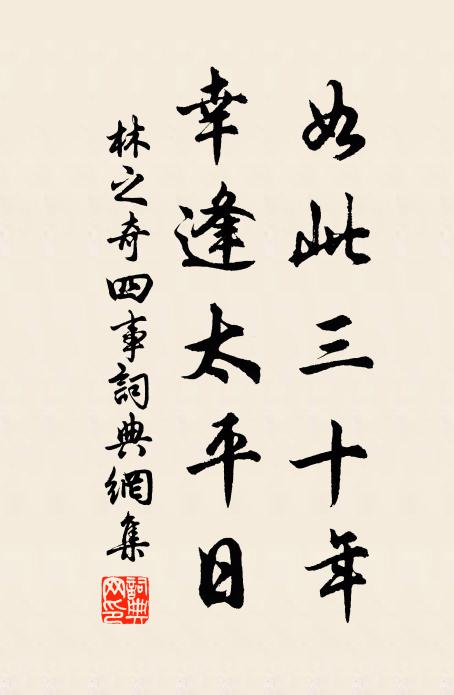 如此三十年
幸逢太平日
林之奇四事詞典網集
詞典网印